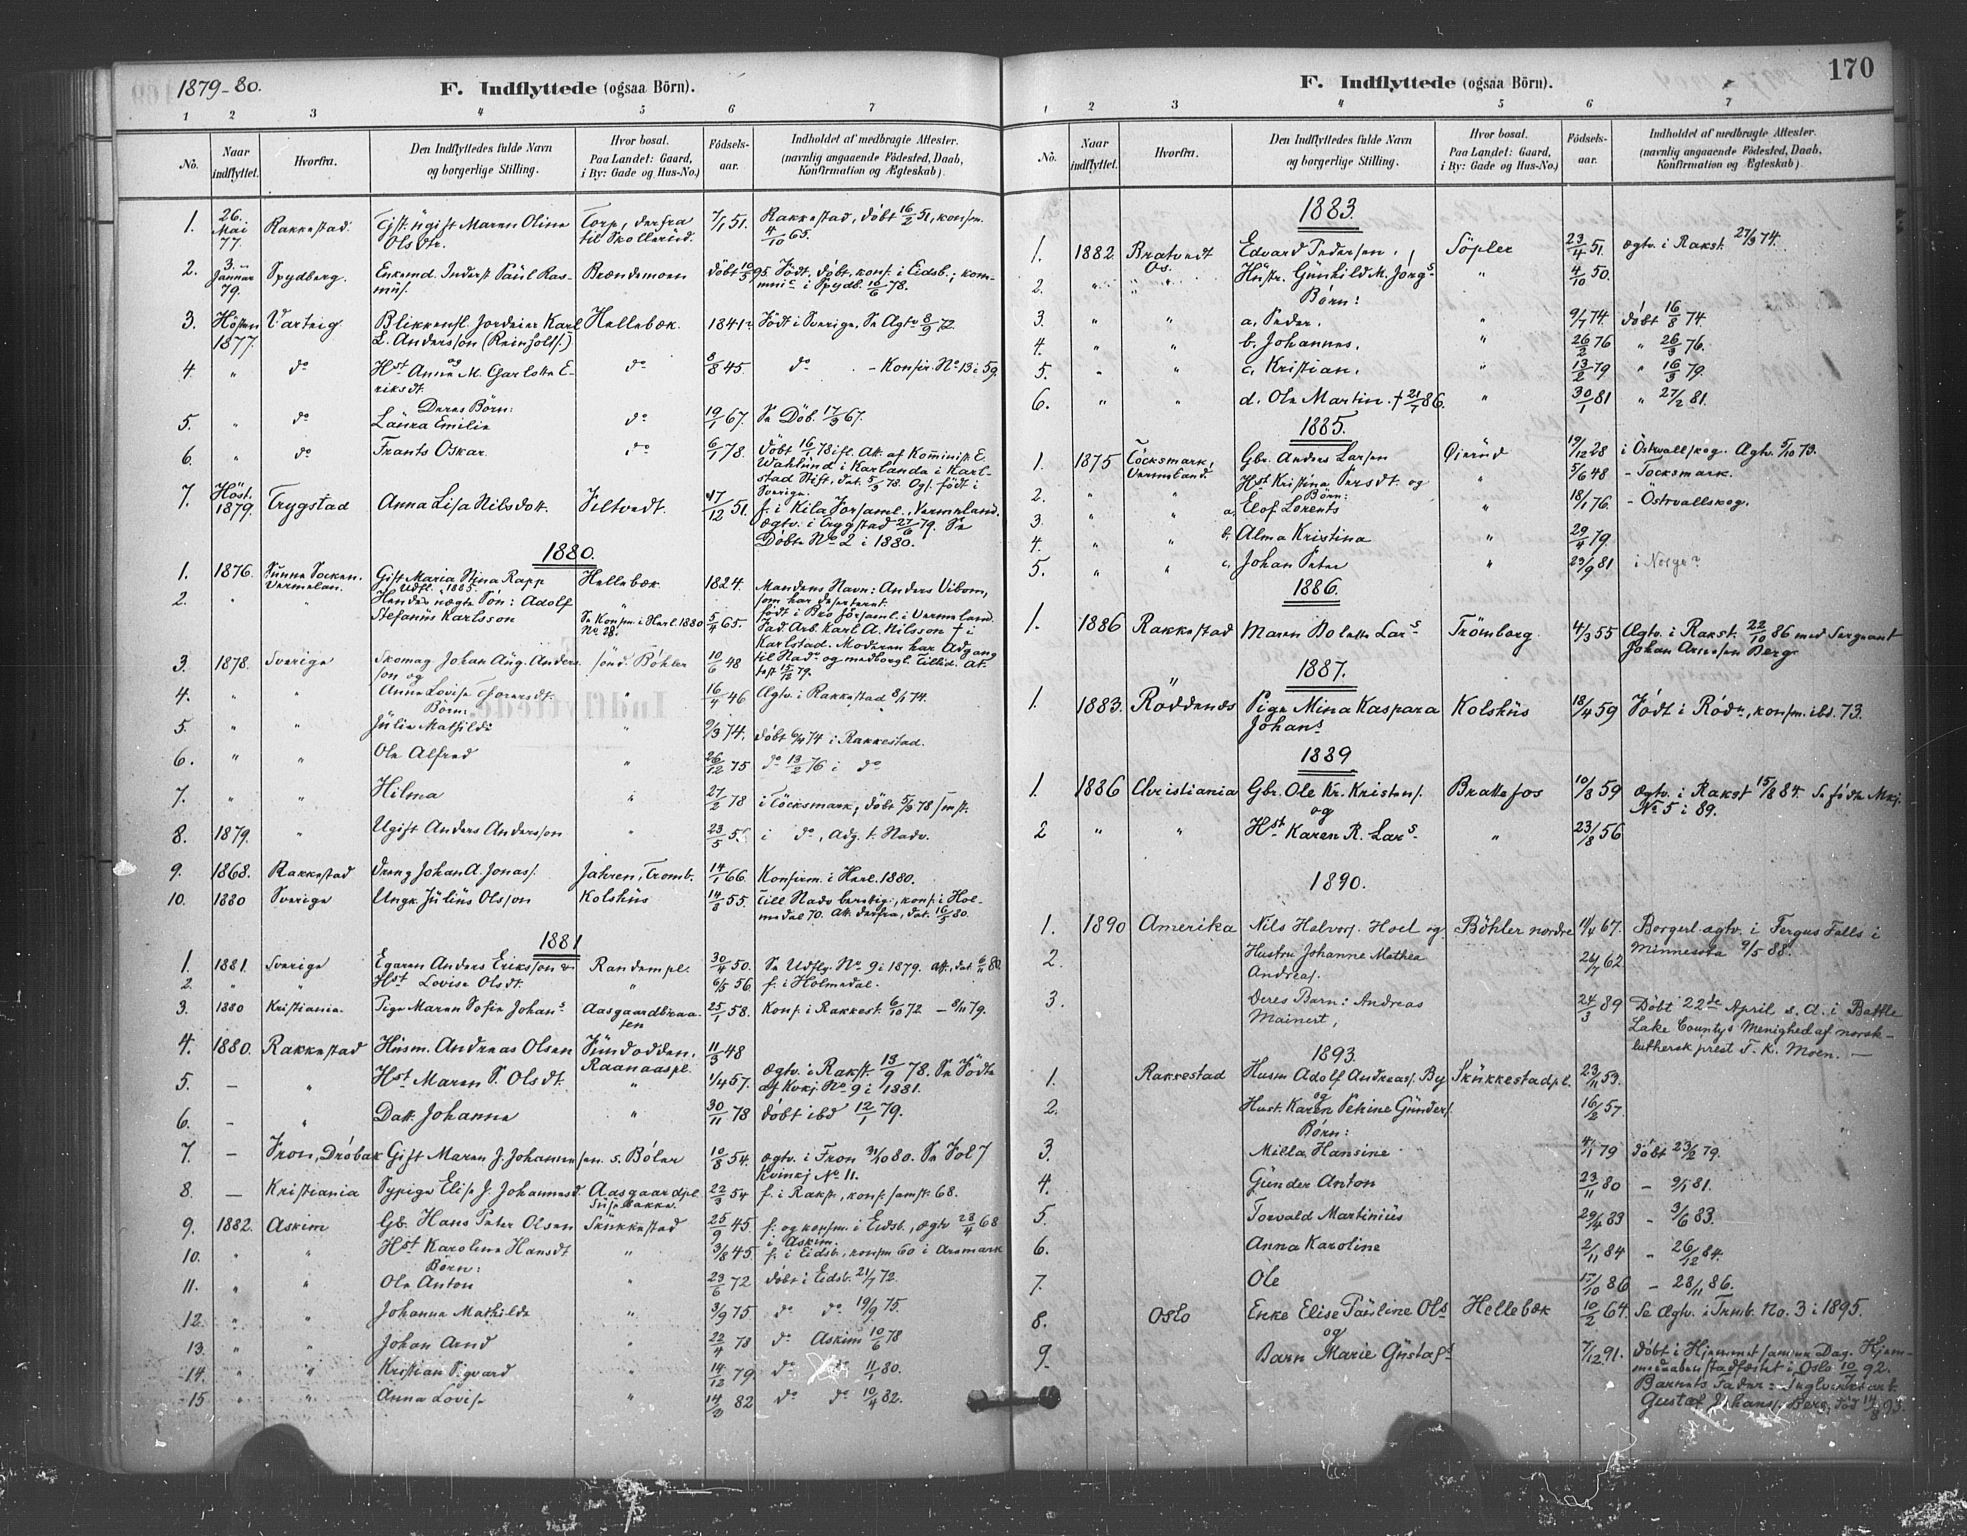 1879-80.
F. Indflyttede (ogsaa Börn).
1 2 3 4 5 6 7
No. Naar indflyttet. Hvorfra. Den Indflyttedes fulde Navn og borgerlige Stilling. Hvor bosat. Paa Landet: Gaard, i By: Gade og Hus-No.) Födsels-aar. Indholdet af medbragte Attester. (navnlig angaaende Födested, Daab, Konfirmation og Ægteskab)
1. 26. Mai 77. Rakkestad. Ugift Maren Oline Olsdtr. Torp, derfra til Skollerud. 7/1 51. Rakkestad, döbt 16/2 51, konfm. 4/10 65.
2. 3. Januar 79. Spydberg. Enkemd. Inderst Paul Rasmus. Brændemoen döbt 10/5 95. Födt, döbt, konf. i Eidsb.; kommunic. i Spydb. 16/6 78.
3. Hösten 1877. Varteig Blikkensl. Jordeier Karl L. Andersson (Reinholdss.) Hellebæk. 1841. Födt i Sverige, Se Ægtv. 8/9 72.
4. " do og Hst. Anna M. Charlotte Eriksdt. do 8/8 45. do - Konfir. No. 13 i 59.
Deres Börn:
5. " do Laura Emilie do 19/1 67. Se Döb. 17/3 67.
6. " do Frants Oskar. do 6/1 78. Döbt 16/1 78 ifl. Att. af Kominist. E. Wahlund i Karlanda i Karlstad Stift, dat. 5/3 78. Ogs. födt i Sverige.
7. Höst. 1879. Trygstad Anna Lisa Nilsdott. Siltvedt. 17/12 51. f. i Kila Forsaml., Vermeland. Ægtv. i Trygstad 27/6 79. Se Döbte No 2 i 1880.
1880.
1. 1876. Sunne Socken. Vermelan. Gift Maria Stina Rapp Udfl. 1885. Hellebæk 1824. Mandens Navn: Anders Vibom, som har deserteret.
2. " " Hendes uægte Sön: Adolf Stefanus Karlsson Se Konfm. i Herl. 1880 No. 28. 5/4 65. födt i Bro Församl. i Vermeland. Fad. Arb. Karl A. Nilsson † i Karlstad. Moderen har Adgang til Nadv. og medborgl. Tillid. Attest 15/12 79.
3. 1878. Sverige Skomag. Johan Aug. Andersson og sönd. Böhler 10/6 48
4. " " Anna Lovise Thoresdt. " 16/4 46 Ægtv. i Rakkestad 8/1 74.
Börn:
5. " " Julie Mathilde " 9/3 74. döbt 6/4 74 i Rakkestad.
6. " " Ole Alfred " 26/12 75 do 13/2 76 i do
7. " " Hilma " 27/2 78 i Töcksmark, döbt 5/3 78 smst.
8. 1879. " Ugift Anders Andersson " 23/5 5 i do, Adg. t. Nadv.
9. 1868. Rakkestad Dreng Johan A. Jonass. Jahren, Tromb. 14/1 66 Konfirm. i Herl. 1880.
10. 1880 Sverige Ungk. Julius Olsson Kolshus 14/8 55. Till Nadv berettig., konf. i Holmedal 70. Att. derfra, dat. 16/5 80.
1881
1. 1881. Sverige Egaren Anders Eriksson & Randempl. 30/4 50. Se Udflyt. No. 9 i 1879. Att. dat. 6/11 80.
2. " " Hst. Lovise Olsdt. " 6/5 56 f. i Holmedal.
3. 1880 Kristiania. Pige Maren Sofie Johans Aasgaardbraaten 25/1 58. Konf. i Rakkest. 6/10 72 - 8/11 79.
4. 1880. Rakkestad Husm. Andreas Olsen Sundodden. Raanaaspl. 11/3 48
5. - " Hst. Maren P. Olsdt. " 1/4 57. ægtv. i Rakst. 13/9 78. Se Födte af Kvkj No. 9 i 1881.
6. - " Datt. Johanne " 30/11 78 döbt ibd 12/1 79.
7. - Fron, Dröbak Gift Maren J. Johannesen s. Böler 10/8 54. ægtv. i Fron 31/10 80. Se Fol 7 Kvinkj No 11.
8. - Kristiania Sypige Elise J. Johannesd. Aasgaardpl. 22/3 54 f. i Rakst., konf. samst. 68.
9. 1882. Askim Gb. Hans Peter Olsen Skukkestad 25/9 45 f. og konfm. i Eidsb., ægtv 28/4 68 i Askim.
10. " " Hst Karoline Hansdt " 3/8 45 f. i Eidsb., konfm 60 i Aremark
Börn:
11. " " Ole Anton " 23/6 72 döbt i Eidsb. 21/7 72.
12. " " Johanne Mathilde " 3/9 75 do do 19/9 75.
13. " " Johan Arnd " 22/4 78 do Askim 10/6 78
14. " " Kristian Sigvard " 14/12 79 do " 11/1 80.
15 " " Anna Lovise " 14/3 82 do do 10/4 82.
170
F. Indflyttede (ogsaa Börn).
1 2 3 4 5 6 7
No. Naar indflyttet. Hvorfra. Den Indflyttedes fulde Navn og borgerlige Stilling. Hvor bosat. Paa Landet: Gaard, i By: Gade og Hus-No.) Födsels-aar. Indholdet af medbragte Attester. (navnlig angaaende Födested, Daab, Konfirmation og Ægteskab)
1883.
1. 1882. Bratvedt Os. Edvard Pedersen, Söpler 23/4 51. ægtv. i Rakst. 27/3 74.
2. " " Hustr. Gunhild M. Jörgs " 4/10 50.
Börn:
3. " " a. Peder. " 9/7 74. döbt 16/8 74.
4. " " b. Johannes. " 26/2 76 " 26/3 76.
5. " " c. Kristian. " 13/2 79 " 16/3 79.
6. " " d. Ole Martin. † 21/7 86. " 30/1 81 " 27/2 81.
1885.
1. 1875 Töcksmark, Vermland. Gbr. Anders Larsen Öierud 19/12 28 i Östvallskog. Ægtv. 5/10 73.
2. " " Hst Kristina Persdt. og " 5/6 48 - Tocksmark.
Börn:
3. " " a, Elof Lorents " 18/1 76. - Östvallskog.
4. " " b. Alma Kristina " 29/4 79
5. " " c, Johan Peter " 23/9 81 i Norge?
1886.
1. 1886 Rakkestad Maren Bolette Lars Trömborg. 4/3 55 Ægtv. i Rakst. 22/10 86 med Sergeant Johan Arnesen Berg.
1887.
1. 1883. Röddenæs Pige Mina Kaspara Johans Kolshus 18/4 59 Födt i Röd., konfm. ibd. 73.
1889
1. 1886 Christiania Gbr. Ole Kr. Kristens. Brattefos 10/8 59 ægtv. i Rakst 15/8 84. Se födte Mkj. No 5 i 89.
og
2 " " Hst Karen R. Lars. " 23/8 56
1890.
1. 1890 Amerika Nils Halvors. Hoel og Böhler nordre 11/4 67. Borgerl. ægtv. i Fergus Falls i Minnesota 9/5 88.
2. Hustru Johanne Mathea Andreas. 26/7 62
3. Deres Barn: Andreas Mainert, 24/3 89 Döbt 22de April s. A. i Battle Lake Countys Menighed af norsk-luthersk prest T. K. Moen. -
1893.
1. Rakkestad Husm Adolf Andreas. By Skukkestadpl. 23/11 53.
og
2. Hust. Karen Petrine Gunders. 16/2 57.
Börn:
3. Milla Hansine 4/1 79 döbt 23/2 79.
4. Gunder Anton 23/11 80 - 9/1 81.
5. Torvald Martinius 29/4 83 - 3/6 83.
6. Anna Karoline 2/11 84 - 26/12 84.
7. Ole 17/10 86 - 28/11 86.
8. Oslo Enke Elise Pauline Ols Hellebæk 10/2 64. Se Ægtv. i Trmb. No. 3 i 1895.
og
9. Barn Marie Gustafs 7/12 91. döbt i Hjemmet samme Dag. Hjemmedaaben stadfæstet i Oslo 10/7 92.
Barnets Fader: Teglværksarb.
Gustaf Johans. Berg, död 14/8 93.